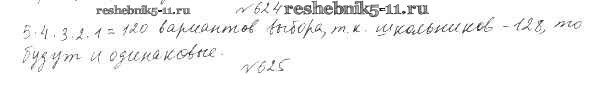 №624
reshebnik5-11.ru reshebnik5-11.ru
5·4·3·2·1=120 вариантов выбора, т.к. школьников -128, то
будут и одинаковые.
№625